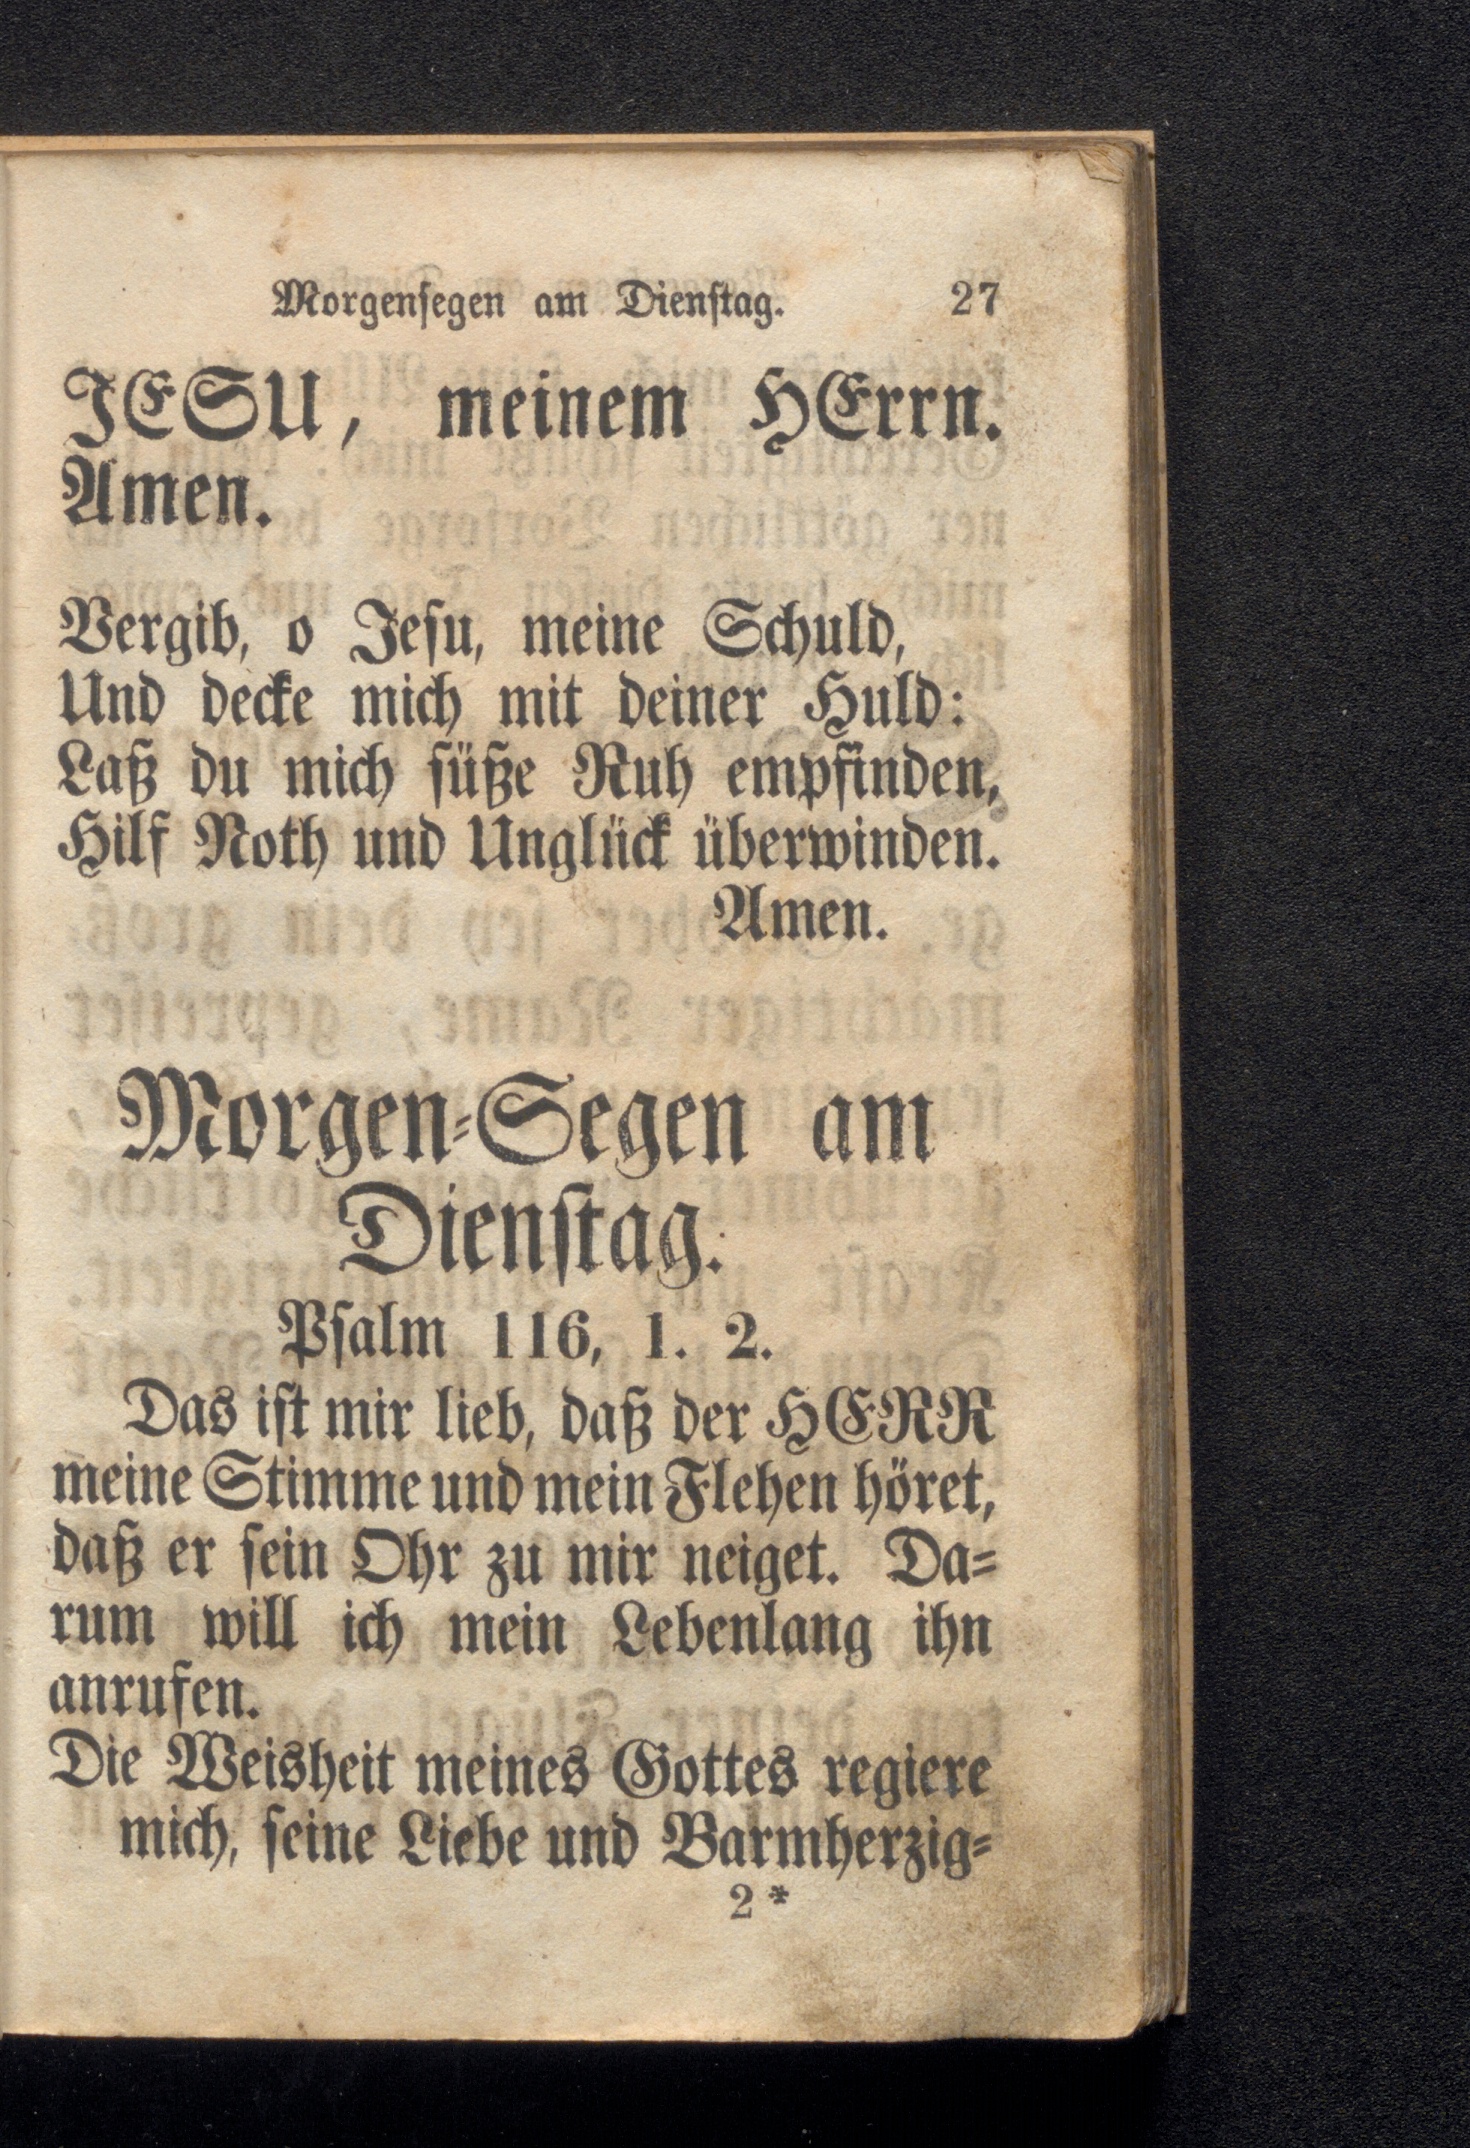 Morgensegen am Dienstag. 27
JESU, meinem HErrn.
Amen.
Vergib, o Jesu, meine Schuld,
Und decke mich mit deiner Huld:
Laß du mich süße Ruh empfinden,
Hilf Noth und Unglück überwinden.
Amen.
Morgen-Segen am
Dienstag.
Psalm 116, 1. 2.
Das ist mir lieb, daß der HERR
meine Stimme und mein Flehen höret,
daß er sein Ohr zu mir neiget. Da-
rum will ich mein Lebenlang ihn
anrufen.
Die Weisheit meines Gottes regiere
mich, seine Liebe und Barmherzig-
2*